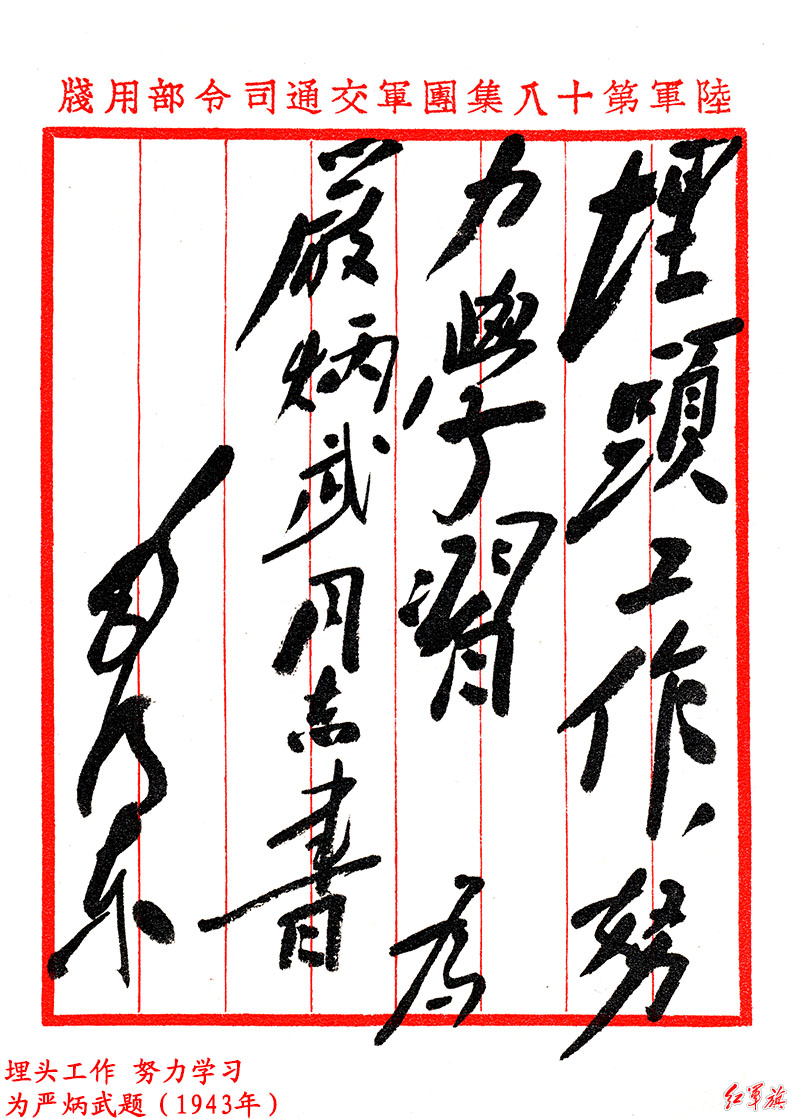 陸軍第十八集團軍交通司令部用牋
埋頭工作,努
力學習 為
嚴炳武同志書
毛澤东
埋头工作 努力学习
为严炳武题（1943年）
红军旗